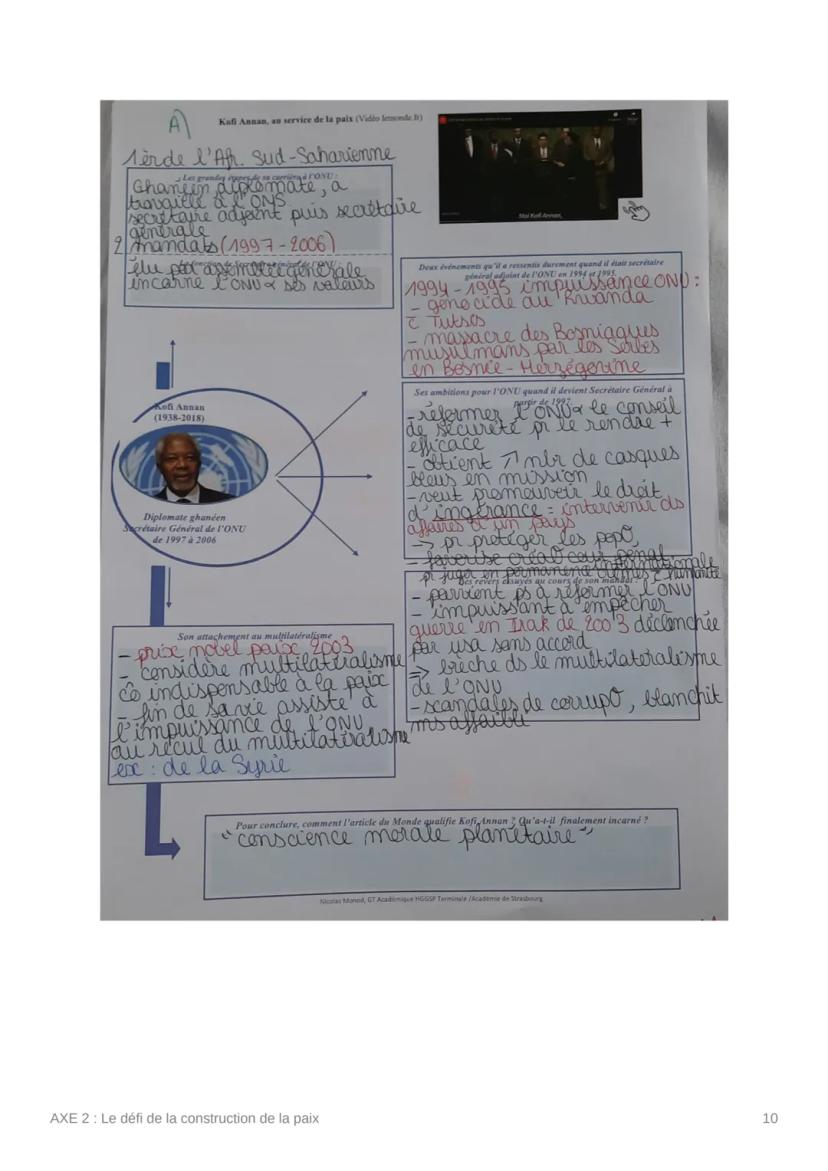 A)
Kofi Annan, au service de la paix (Vidéo lemonde.fr)
Moi Kofi Annan,
1èr de l'Afr. Sud-Saharienne
Les grandes étapes de sa carrière à l'ONU :
Ghanéen diplomate, a
travaillé à l'OMS
secrétaire adjoint puis secrétaire
générale
2 mandats (1997-2006)
La fonction de Secrétaire général de l'ONU :
élu par assemblée générale
incarne l'ONU & ses valeurs
Deux événements qu'il a ressentis durement quand il était secrétaire
général adjoint de l'ONU en 1994 et 1995.
1994-1995 impuissance ONU :
- génocide au Rwanda
c̄ Tutsis
- massacre des Bosniaques
musulmans par les Serbes
en Bosnie-Herzégovine
Ses ambitions pour l'ONU quand il devient Secrétaire Général à
partir de 1997
- réformer l'ONU & le conseil
de sécurité pr le rendre +
efficace
- obtient ↗ nbr de casques
bleus en mission
- veut promouvoir le droit
d'ingérance = intervenir ds
affaires d'un pays
-> pr protéger les pop°
- favorise créa° cour pénal internationale
pr juger en permanence crimes c̄ humanité
Kofi Annan
(1938-2018)
Diplomate ghanéen
Secrétaire Général de l'ONU
de 1997 à 2006
Les revers essuyés au cours de son mandat :
- parvient ps à réformer l'ONU
- impuissant à empêcher
guerre en Irak de 2003 déclenchée
par usa sans accord
=> brèche ds le multilatéralisme
de l'ONU
- scandales de corrup°, blanchit
ms affaibli
Son attachement au multilatéralisme
- prix nobel paix 2003
- considère multilatéralisme
cō indispensable à la paix
- fin de sa vie assiste à
l'impuissance de l'ONU
au recul du multilatéralisme
ex : de la Syrie
Pour conclure, comment l'article du Monde qualifie Kofi Annan ? Qu'a-t-il finalement incarné ?
"conscience morale planétaire"
Nicolas Monod, GT Académique HGGSP Terminale /Académie de Strasbourg
AXE 2 : Le défi de la construction de la paix
10